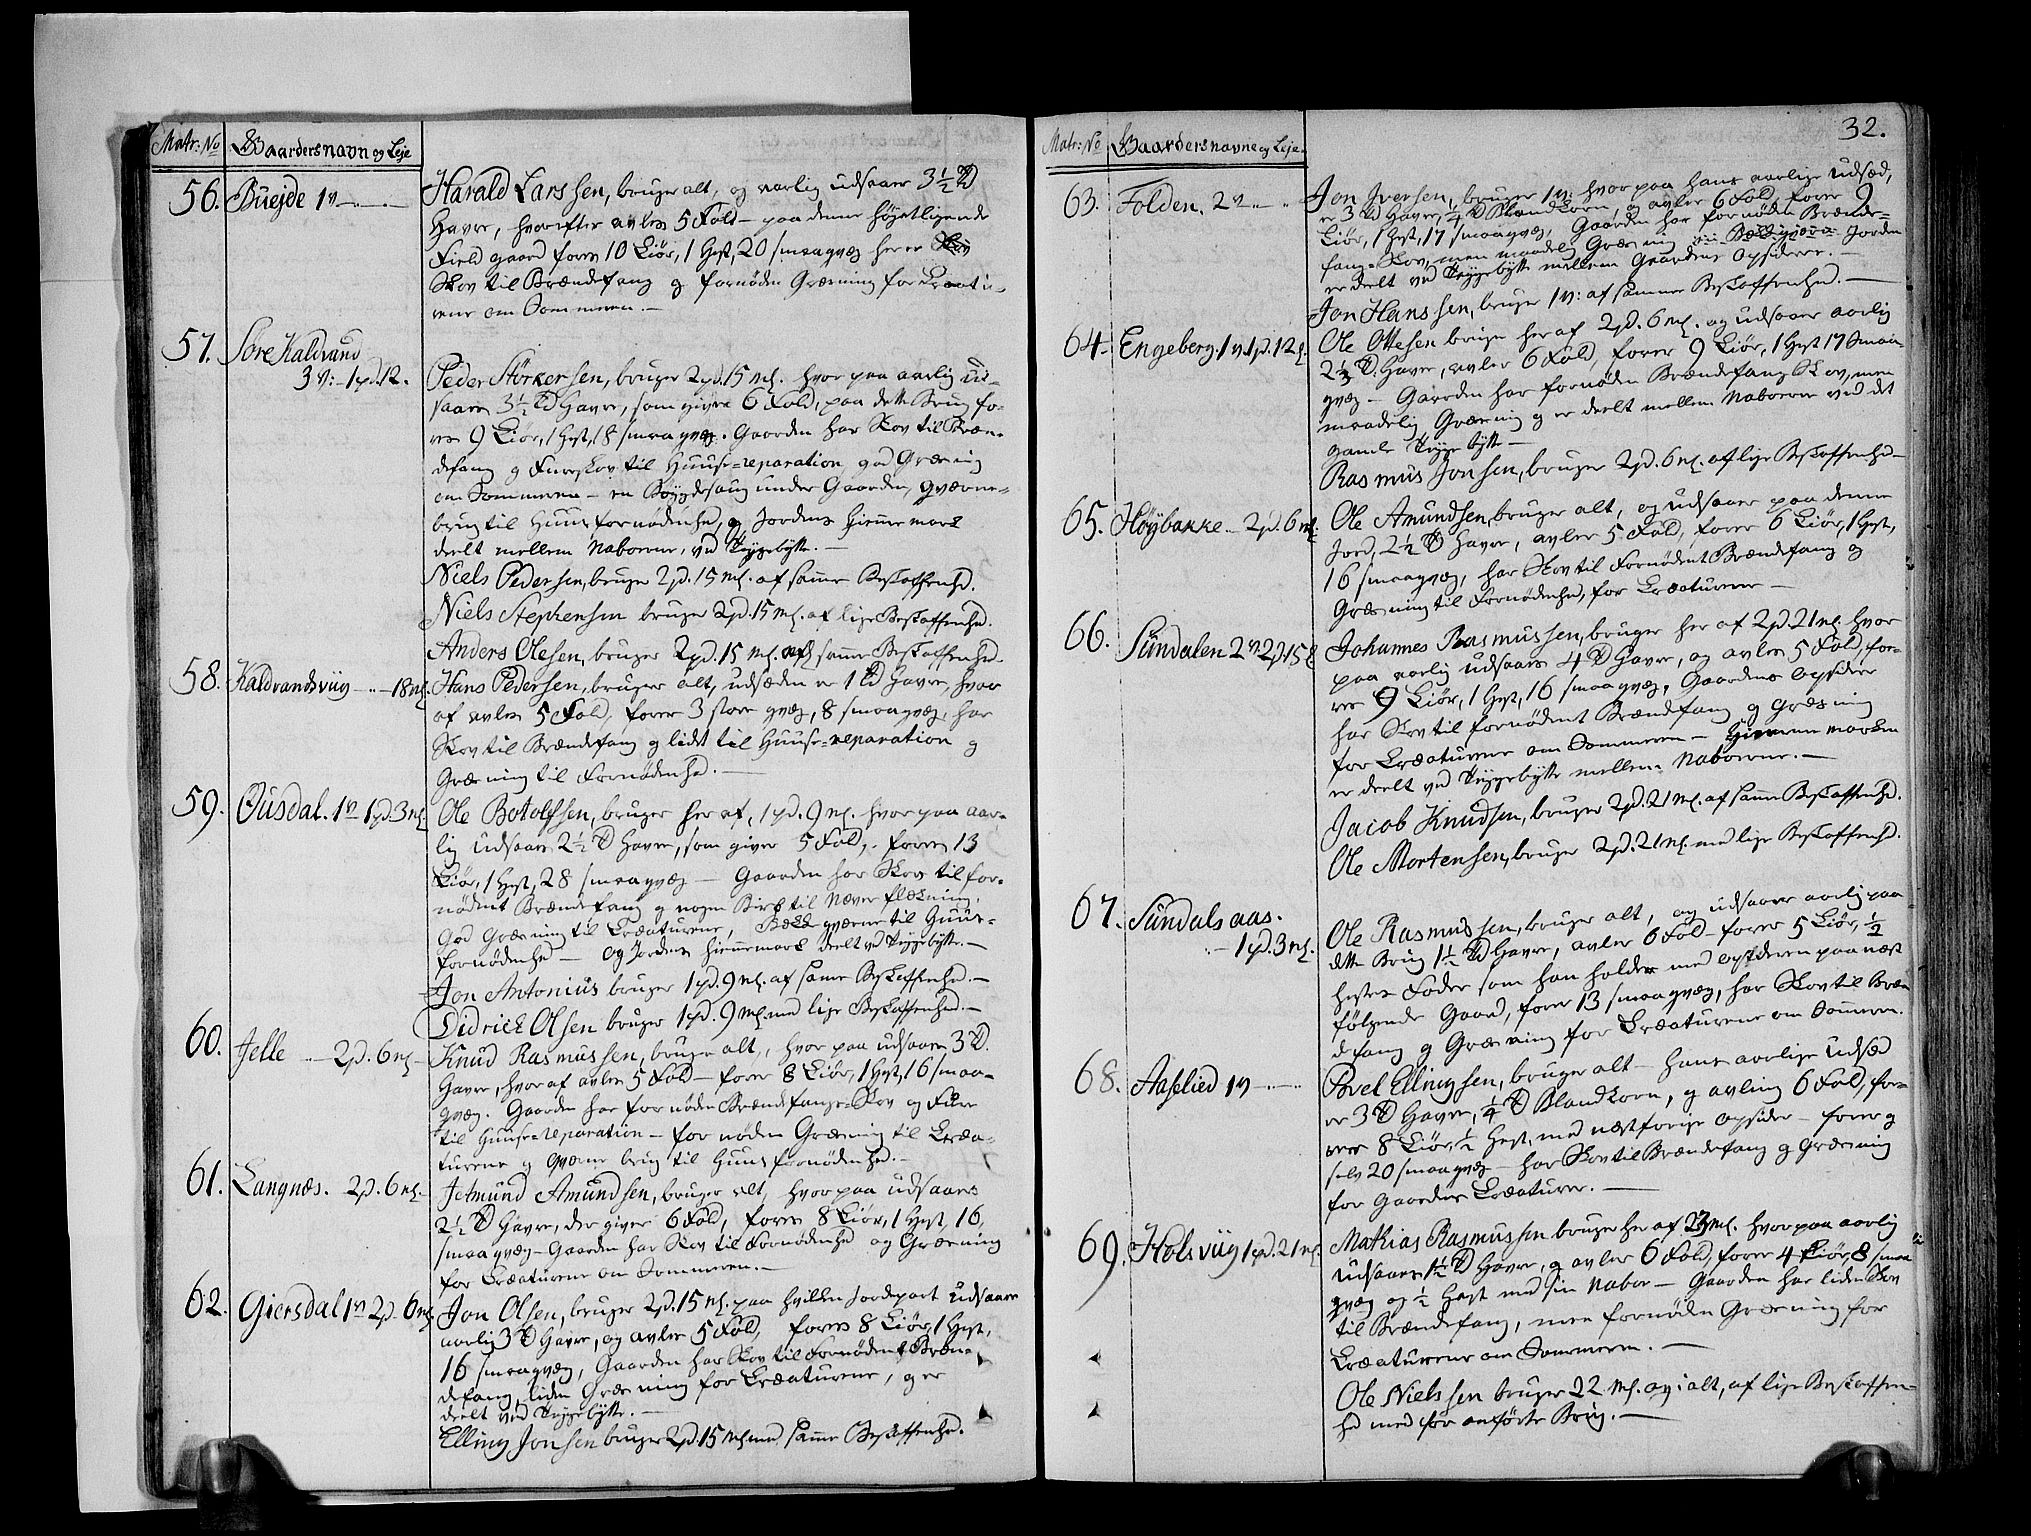 Matr: No Gaardersnavn og Leje
56. Büejde 1 v
Harald Larssen, bruger alt, og aarlig udsaaer 3½ Td
Havre, hvorefter avles 5 Fold – paa denne høytliggende
Field gaard fores 10 Kiør, 1 Hest, 20 smaagvæg her er
Skov til Brændefang og fornøden Græsning for Creatu-
rene om Sommeren. —
57. Sore Kaldvand
3 v: – 1 pd. 12.
Peder Störkersen, bruger 2 pd. 15 ml. hvor paa aarlig ud-
saaes 3½ Td Havre, som giver 6 Fold, paa dette Brug fo-
res 9 Kiør, 1 Hest, 18 smaagvæg. Gaarden har Skov til Bræn-
defang og Fureskov til Huuse=reparation, god Græsning
om Sommeren – en Bøygdesaug under Gaarden, gværne-
brug til Huusfornødenhed, og Jordens hiemmemark
deelt mellem Naboerne, ved Teygebytte. —
Niels Pedersen, bruger 2 pd. 15 ml. af samme Beskaffenhed.
Niels Stephensen bruger 2 pd. 15 ml. af lige Beskaffenhed.
Anders Olesen, bruger 2 pd. 15 ml. af samme Beskaffenhed.
58. Kaldvandsviig – .. – 18 ml.
Hans Pedersen, bruger alt, udsæden er 1 Td Havre, hvor
af avles 5 Fold, forer 3 store gvæg, 8 smaagvæg, har
Skov til Brændefang og lidet til Huuse=reparation og
Græsning til Fornødenhed. —
59. Ousdal. 1 v 1 pd. 3 ml.
Ole Botolfsen, bruger her af, 1 pd. 9 ml. hvor paa aar-
lig udsaaes 2½ Td Havre, som giver 5 Fold, forer 13
Kiør, 1 Hest, 28 smaagvæg — Gaarden har Skov til for-
nødent Brændefang og nogen Birk til Næver flækning,
God Græsning til Creaturene, Bæk gværne til Huus-
fornødenhed — og Jordens hiemmemark deelt ved Teygebytte. —
Jon Antonius bruger 1 pd. 9 ml. af samme Beskaffenhed. —
Didrick Olsen bruger 1 pd. 9 ml. med lige Beskaffenhed. —
60. Jelle .. — 2 pd. 6 ml –
Knud Rasmussen, bruger alt, hvor paa udsaaes 3 Td.
Havre, hvor af avles 5 Fold – forer 8 Kiør, 1 Hest, 16 smaa-
gvæg. Gaarden har fornøden Brændefangs=Skov og Fure
til Huuse=reparation – fornøden Græsning til Creæ-
turene og Gværne brug til Huusfornødenhed. –
61. Langnæs. 2 pd. 6 ml.
Jetmund Amundsen, bruger alt, hvor paa udsaaes
2½ Td Havre, der giver 6 Fold, forer 8 Kiør, 1 Hest, 16,
smaagvæg – Gaarden har Skov til Fornødenhed og Græsning
for Creaturene om Sommeren. —
62. Giersdal 1 v 2 pd. 6 ml
Jon Olsen, bruger 2 pd. 15 ml. paa hvilken Jordpart udsaaes
aarlig 3 Td Havre, og avles 5 Fold, forer 8 Kiør, 1 Hest,
16 smaagvæg, Gaarden har Skov til Fornødent Bræn-
defang, liden Græsning for Creaturene, og er
deelt ved Teygebytte. —
Elling Jonsen bruger 2 pd. 15 ml. med samme Beskaffenhed.
32.
Matr: No Gaardersnavne og Leje
63. Folden. 2 v ..
Jon Iversen, bruger 1 v: hvor paa hans aarlige udsæd,
er 3 Td Havre, ¼ Td Blandkorn og avler 6 Fold, forer 9
Kiør, 1 Hest, 17 smaagvæg, Gaarden har fornøden Brænde-
fang=Skov, men maadelig Græsning Jorden
er deelt ved Teygebytte mellem Gaardens Opsiddere. —
Jon Hanssen, bruger 1 v: af samme Beskaffenhed. —
64. Engeberg. 1 v 1 pd. 12 ml.
Ole Ottesen bruger her af 2 pd. 6 ml. og udsaaer aarlig
2½ Td. Havre, avler 6 Fold, forer 9 Kiør, 1 Hest 17 Smaa-
gvæg – Gaarden har fornøden Brændefang Skov, men
maadelig Græsning og er deelt mellem Naboerne ved det
gamle Teygebytte —
Rasmus Jonsen, bruger 2 pd. 6 ml. af lige Beskaffenhed —
65. Høybakke .. – 2 pd. 6 ml.
Ole Amundsen, bruger alt, og udsaaer paa denne
Jord, 2½ Td Havre, avler 5 Fold, forer 6 Kiør, 1 Hest,
16 smaagvæg, har Skov til Fornødent Brændefang og
Græsning til Fornødenhed, for Creaturene —
66. Sündalen 2 v 2 pd. 15 ml
Johannes Rasmussen, bruger her af 2 pd. 21 ml. hvor
paa aarlig udsaaes 4 Td Havre, og avles 5 Fold, fo-
rer 9 Kiør, 1 Hest, 16 smaagvæg, Gaardens Opsidder
har Skov til fornødent Brændefang og Græsning
for Creaturene om Sommeren – Hiemmemarken
er deelt ved Teygebytte mellem Naboerne. —
Jacob Knudsen, bruger 2 pd. 21 ml. af samme Beskaffenhed.
Ole Mortensen, bruger 2 pd. 21 ml. med lige Beskaffenhed.
67. Sündals aas.
.. – 1 pd. 3 ml.
Ole Rasmussen, bruger alt, og udsaaer aarlig paa
dette Brug 1½ Td Havre, avler 6 Fold – forer 5 Kiør, ½
Hestes Foder som han holder med Opsidderen paa næst
følgende Gaard, forer 13 smaagvæg, har Skov til Bræn-
defang og Græsning for Creaturene om Sommeren.
68. Aaslied 1 v ..
Povel Ellingsen, bruger alt – hans aarlige Udsæd
er 3 Td Havre, ¼ Td Blandkorn, og avling 6 Fold, fo-
rer 8 Kiør, ½ Hest, med næstforige Opsidder – forer og
selv 20 smaagvæg – har Skov til Brændefang og Græsning
for Gaardens Creaturer. —
69. Holsviig 1 pd. 21 ml.
Mathias Rasmussen bruger her af 23 ml. hvor paa aarlig
udsaaes 1½ Td Havre, og avles 6 Fold, forer 4 Kiør, 8 smaa
gvæg og ½ Hest med sin Nabor – Gaarden har liden Skov
til Brændefang, men fornøden Græsning for
Creaturene om Sommeren. —
Ole Nielssen bruger 22 ml. og i alt, af lige Beskaffen-
hed med før anførte Brug. —